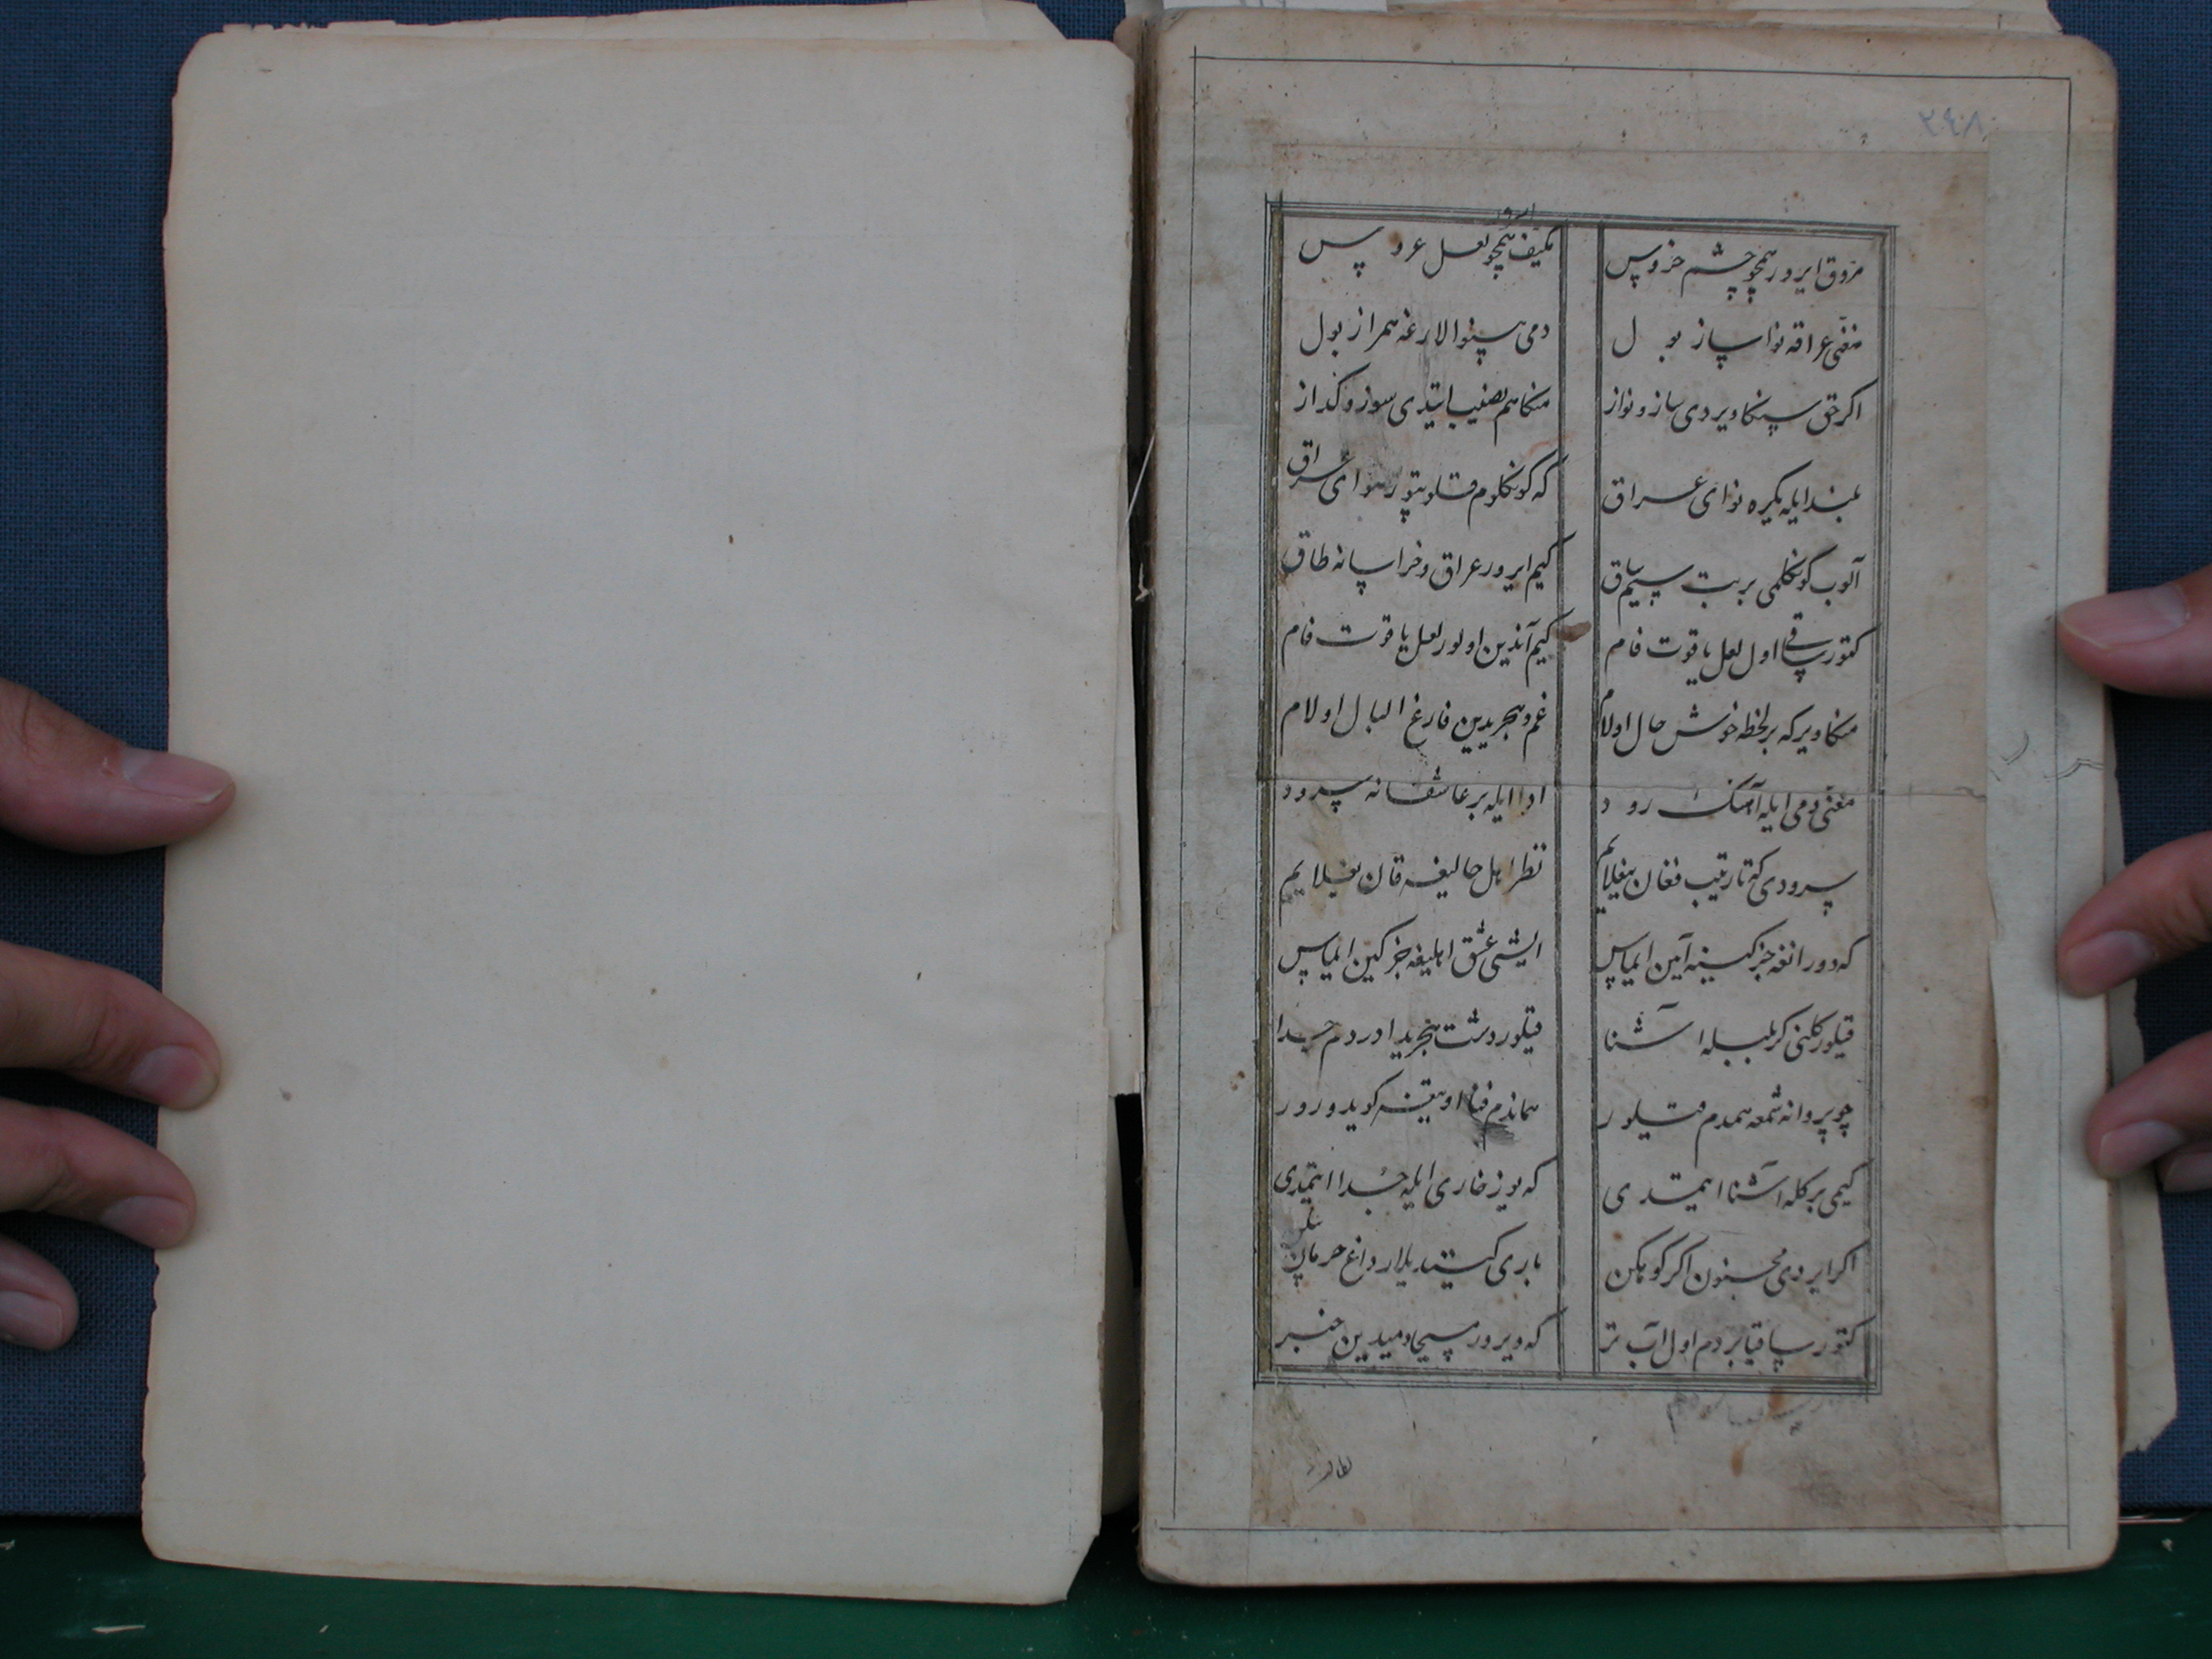 ۲۴۸
مروق ایرور همچو چشم خروس
مکیف ایرور همچو لعل عروس
مغنی عراقه نوا ساز بول
دمی بینوالارغه همراز بول
اکر حق سنکا ویردی ساز و نواز
منکا هم نصیب ایتدی سوز و کداز
بلند ایله یکیره نوای عراق
که کونکلوم قلوبتور هوای عراق
آلوب کونکلمی بر بت سیم ساق
کیم ایرور عراق و خراسانه طاق
کتور ساقی اول لعل یاقوت فام
کیم آندین اولور لعل یاقوت فام
منکا ویر که بر لحظه خوش حال اولام
غم و هجریدین فارغ البال اولام
مغنی دمی ایله آهنک رود
ادا ایله بر عاشقانه سرود
سرودی که تارتیب فغان ییغلایم
نظر اهل حالیغه قان ییغلایم
که دورانغه جز کینه آیین ایماس
ایشی عشق اهلیغه جز کین ایماس
قیلور کلنی کر بلبله آشنا
قیلور دشت هجریدا دردم جدا
چو پروانه شمعه همدم قیلور
هماندم فنا اوتیغه کویدورور
کیمی بر کله آشنا ایتمدی
که یوز خاری ایله جدا ایتمدی
اکر ایردی مجنون اکر کوهکن
باری کیتدیلار داغ حرمان بیلن
کتور ساقیا بر دم اول آب تر
که ویرور مسیحا دمیدین خبر